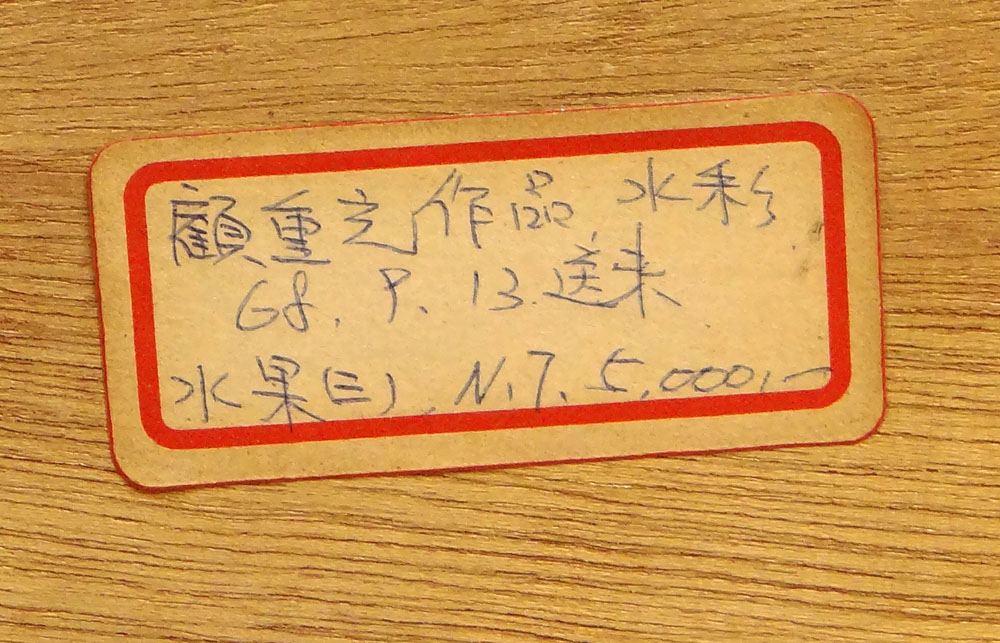 顧重光作品 水彩
68.9.13.送来
水果(三), N.T.5,000.—